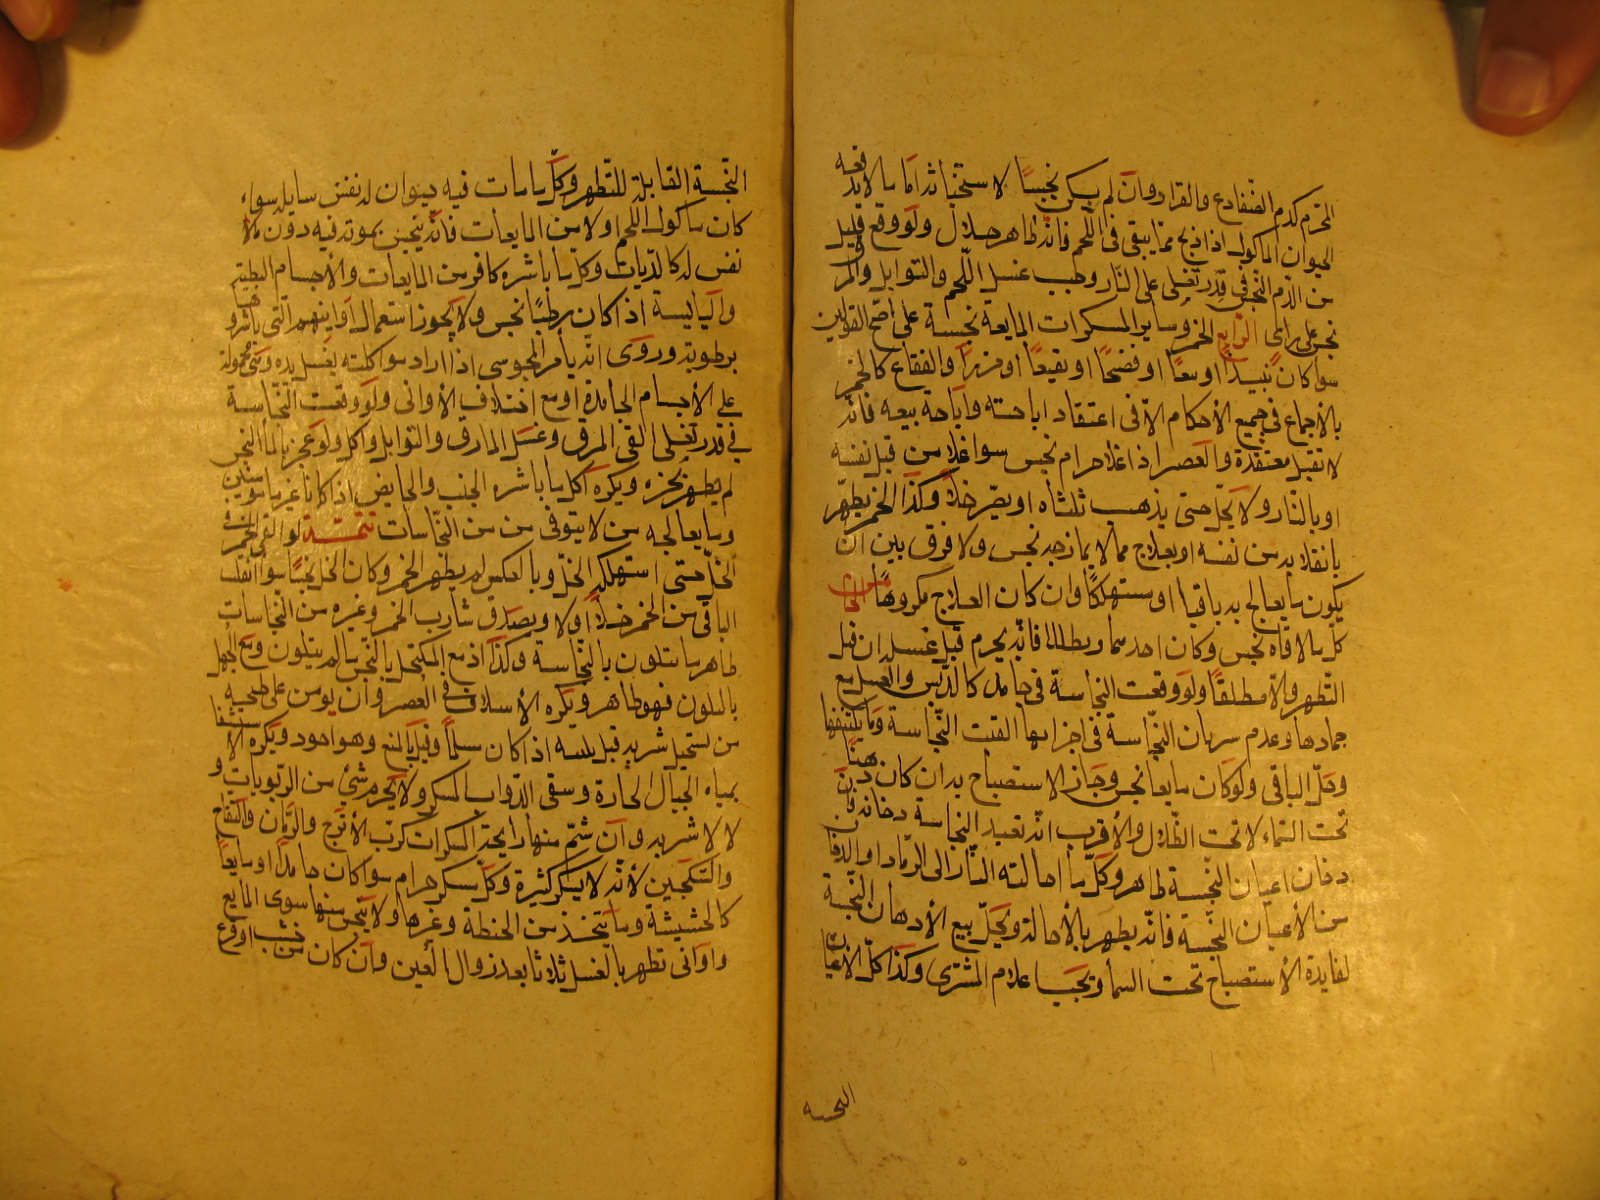 المحرم كدم الضفادع والقراد وان لم يكن نجسًا لاستخباثه اما ما لا يدفعه
الحيوان المأكول اذا ذبح مما يبقى في اللحم فانه طاهر حلال ولو وقع قليل
من الدم النجس في قدر تغلي على النار وجب غسل اللحم والتوابل والمرق
نجس على رأي الرابع الخمر وسائر المسكرات المايعة نجسة على اصح القولين
سوا كان نبيذًا او فضخًا او نقيعًا او مزرًا والفقاع كالخمر
بالاجماع في جميع الأحكام الا في اعتقاد اباحته واباحة بيعه فانه
لا تقبل معتقده والعصر اذا غلا حرام نجس سوا غلا من قبل نفسه
او بالنار ولا يحل حتى يذهب ثلثاه او يصير خلا وكذا الخمر يطهر
بانقلابه من نفسه او بعلاج مما لا يمازجه نجس ولا فرق بين ان
يكون ما يعالج به باقيا او مستهلكًا وان كان العلاج مكروهًا الخامس
كل ما لاقاه نجس وكان احدهما رطبا فانه يحرم قبل غسله ان قبل
التطهر والا مطلقًا ولو وقعت النجاسة في جامد كالدبس والعسل مع
جمادها وعدم سريان النجاسة في اجزايها القيت النجاسة وما يكتنفها
وحل الباقي ولو كان مايعا نجس وجاز الاستصباح به ان كان دهنًا
تحت السماء لا تحت الظلال والأقرب انه تعبد لا لنجاسة دخانه فان
دخان اعيان النجسة طاهر وكل ما احالته النار الى الرماد او الدخان
من الأعيان النجسة فانه يطهر بالأحالة ويحل بيع الأدهان النجسة
لفايدة الأستصباح تحت السما ويجب اعلام المشتري وكذا كل الاعيان
النجسه
النجسة القابلة للتطهر وكل ما مات فيه حيوان له نفس سايله سواء
كان مأكول اللحم او لا من المايعات فانه ينجس بموته فيه دون ما لا
نفس له كالديات وكل ما باشره كافر من المايعات والأجسام الرطبة
واليابسة اذا كان رطبًا نجس ولا يجوز استعمال اوانيهم التي باشروها
برطوبة وروي انه يأمر المجوسي اذا اراد مواكلته بغسل يده وهي محمولة
على الأجسام الجامدة او مع اختلاف الأواني ولو وقعت النجاسة
في قدر تغلي القي المرق وغسل المارق والتوابل واكل ولو عجن بالماء النجس
لم يطهر بخبزه ويكره اكل ما باشره الجنب والحايض اذا كانا غير مامونين
وما يعالجه من لا يتوقى من النجاسات تتمة لو القي الخمر في
الخل حتى استهلكه الخل وبالعكس لم يطهر الخمر وكان الخل نجسًا سوا انقلب
الباقي من الخمر خلا او لا وبصاق شارب الخمر وغيره من النجاسات
طاهر ما لم يتلون بالنجاسة وكذا دمع المكتحل بالنجس ما لم يتلون ومع الجهل
بالتلون فهو طاهر ويكره الأسلاف في العصر وان يومن على طبخه
من يستحل شربه قبل ثلثيه اذا كان مسلمًا وقيل بالمنع وهو اجود ويكره الأستشفا
بمياه الجبال الحارة وسقي الدواب المسكر ولا يحرم شئ من الربوبات و
لا لا شربه وان شم منها رايحة المسكرات كرب الأترج والرمان والتفاح
والسكنجبين لأنه لا يسكر كثيرة وكل مسكر حرام سوا كان جامدًا او مايعا
كالحشيشة وما يتخذ من الحنطة وغيرها ولا ينجس منها سوى المايع
واواني تطهر بالغسل ثلاثا بعد زوال العين وان كان من خشب او قرع